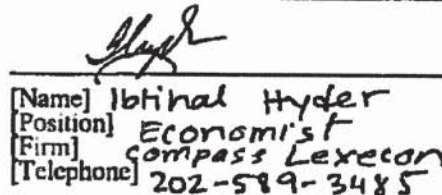 [Name] Ibtihal Hyder
[Position] Economist
[Firm] Compass Lexecon
[Telephone] 202-589-3485